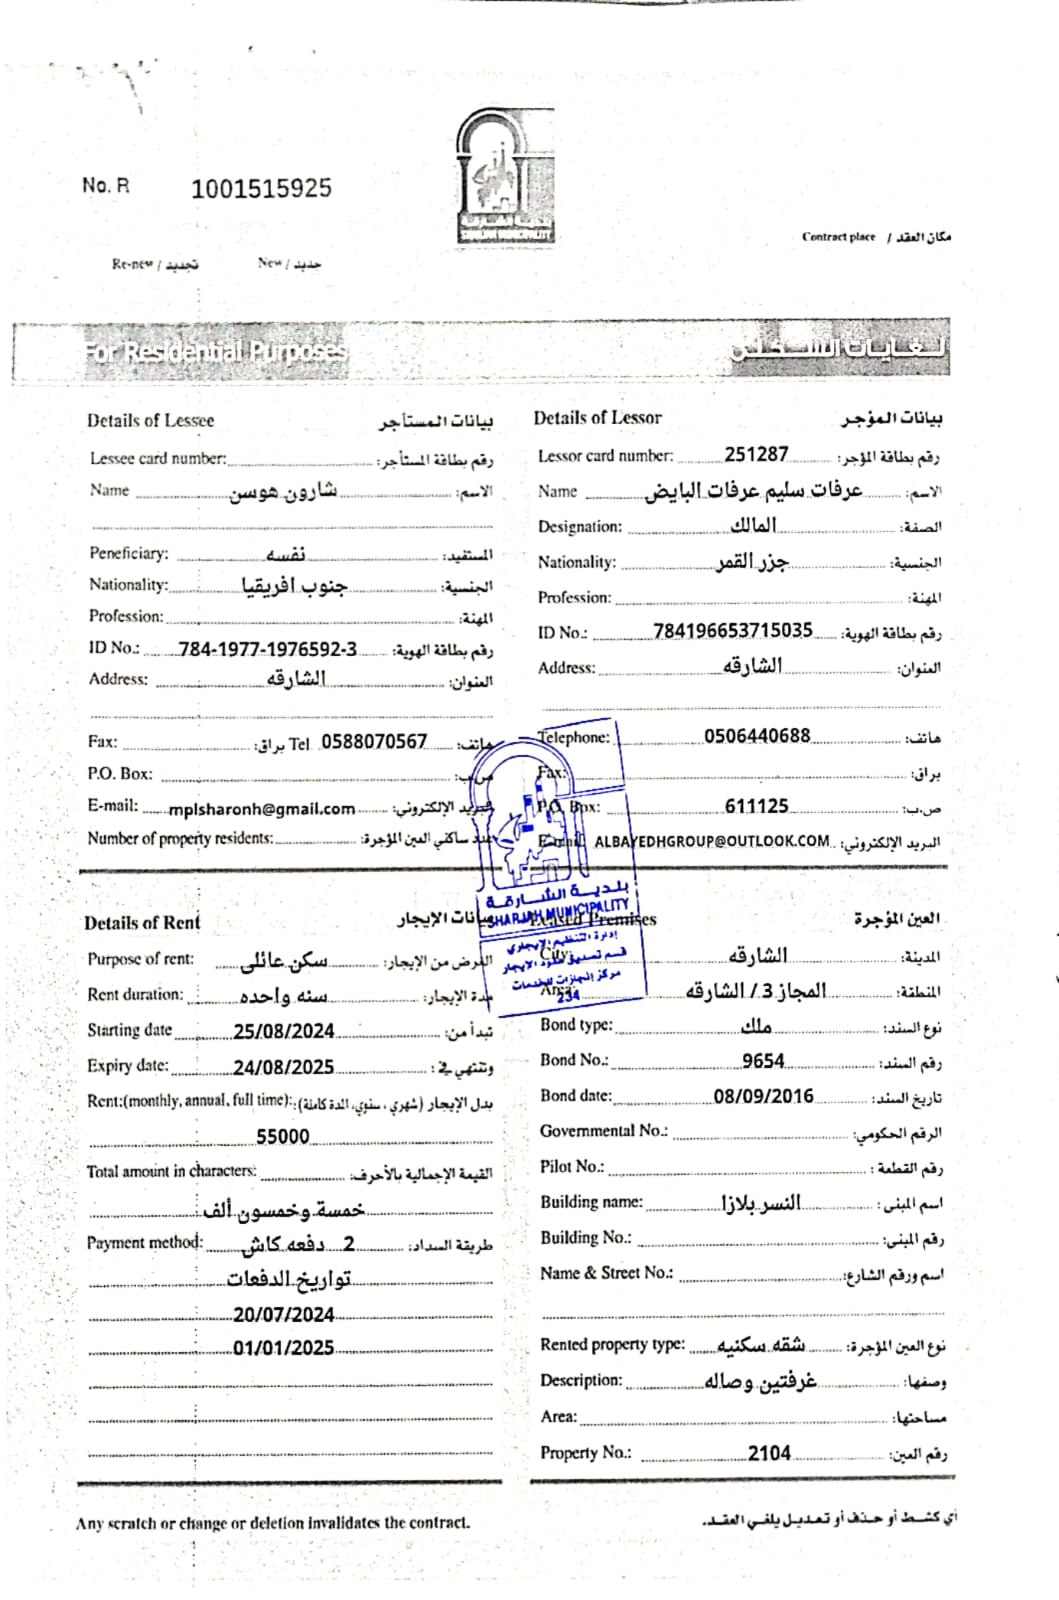 No. R 1001515925
بلدية الشارقة
SHARJAH MUNICIPALITY
Contract place / مكان العقد
Re-new / تجديد New / جديد
For Residential Purposes لغايات السكنى
Details of Lessee بيانات المستأجر
Lessee card number: رقم بطاقة المستأجر:
Name شارون هوسن الاسم:
Peneficiary: نفسه المستفيد:
Nationality: جنوب افريقيا الجنسية:
Profession: المهنة:
ID No.: 784-1977-1976592-3 رقم بطاقة الهوية:
Address: الشارقه العنوان:
Fax: براق: Tel 0588070567 هاتف:
P.O. Box: ص.ب:
E-mail: mplsharonh@gmail.com البريد الإلكتروني:
Number of property residents: عدد ساكني العين المؤجرة:
Details of Lessor بيانات المؤجر
Lessor card number: 251287 رقم بطاقة المؤجر:
Name عرفات سليم عرفات البايض الاسم:
Designation: المالك الصفة:
Nationality: جزر القمر الجنسية:
Profession: المهنة:
ID No.: 784196653715035 رقم بطاقة الهوية:
Address: الشارقه العنوان:
Telephone: 0506440688 هاتف:
Fax: براق:
P.O. Box: 611125 ص.ب:
E-mail: ALBAYEDHGROUP@OUTLOOK.COM البريد الإلكتروني:
بلدية الشارقة
SHARJAH MUNICIPALITY
إدارة التنظيم الإيجاري
قسم تصديق عقود الإيجار
مركز إنجازات للخدمات
234
Details of Rent بيانات الإيجار
Purpose of rent: سكن عائلى الغرض من الإيجار:
Rent duration: سنه واحده مدة الإيجار:
Starting date 25/08/2024 تبدأ من:
Expiry date: 24/08/2025 وتنتهي في:
Rent:(monthly, annual, full time): بدل الإيجار (شهري، سنوي، المدة كاملة):
55000
Total amount in characters: القيمة الإجمالية بالأحرف:
خمسة وخمسون ألف
Payment method: 2 دفعه كاش طريقة السداد:
تواريخ الدفعات
20/07/2024
01/01/2025
Leased Premises العين المؤجرة
City: الشارقه المدينة:
Area: المجاز 3 / الشارقه المنطقة:
Bond type: ملك نوع السند:
Bond No.: 9654 رقم السند:
Bond date: 08/09/2016 تاريخ السند:
Governmental No.: الرقم الحكومي:
Pilot No.: رقم القطعة:
Building name: النسر بلازا اسم المبنى:
Building No.: رقم المبنى:
Name & Street No.: اسم ورقم الشارع:
Rented property type: شقه سكنيه نوع العين المؤجرة:
Description: غرفتين وصاله وصفها:
Area: مساحتها:
Property No.: 2104 رقم العين:
Any scratch or change or deletion invalidates the contract. أي كشط أو حذف أو تعديل يلغي العقد.